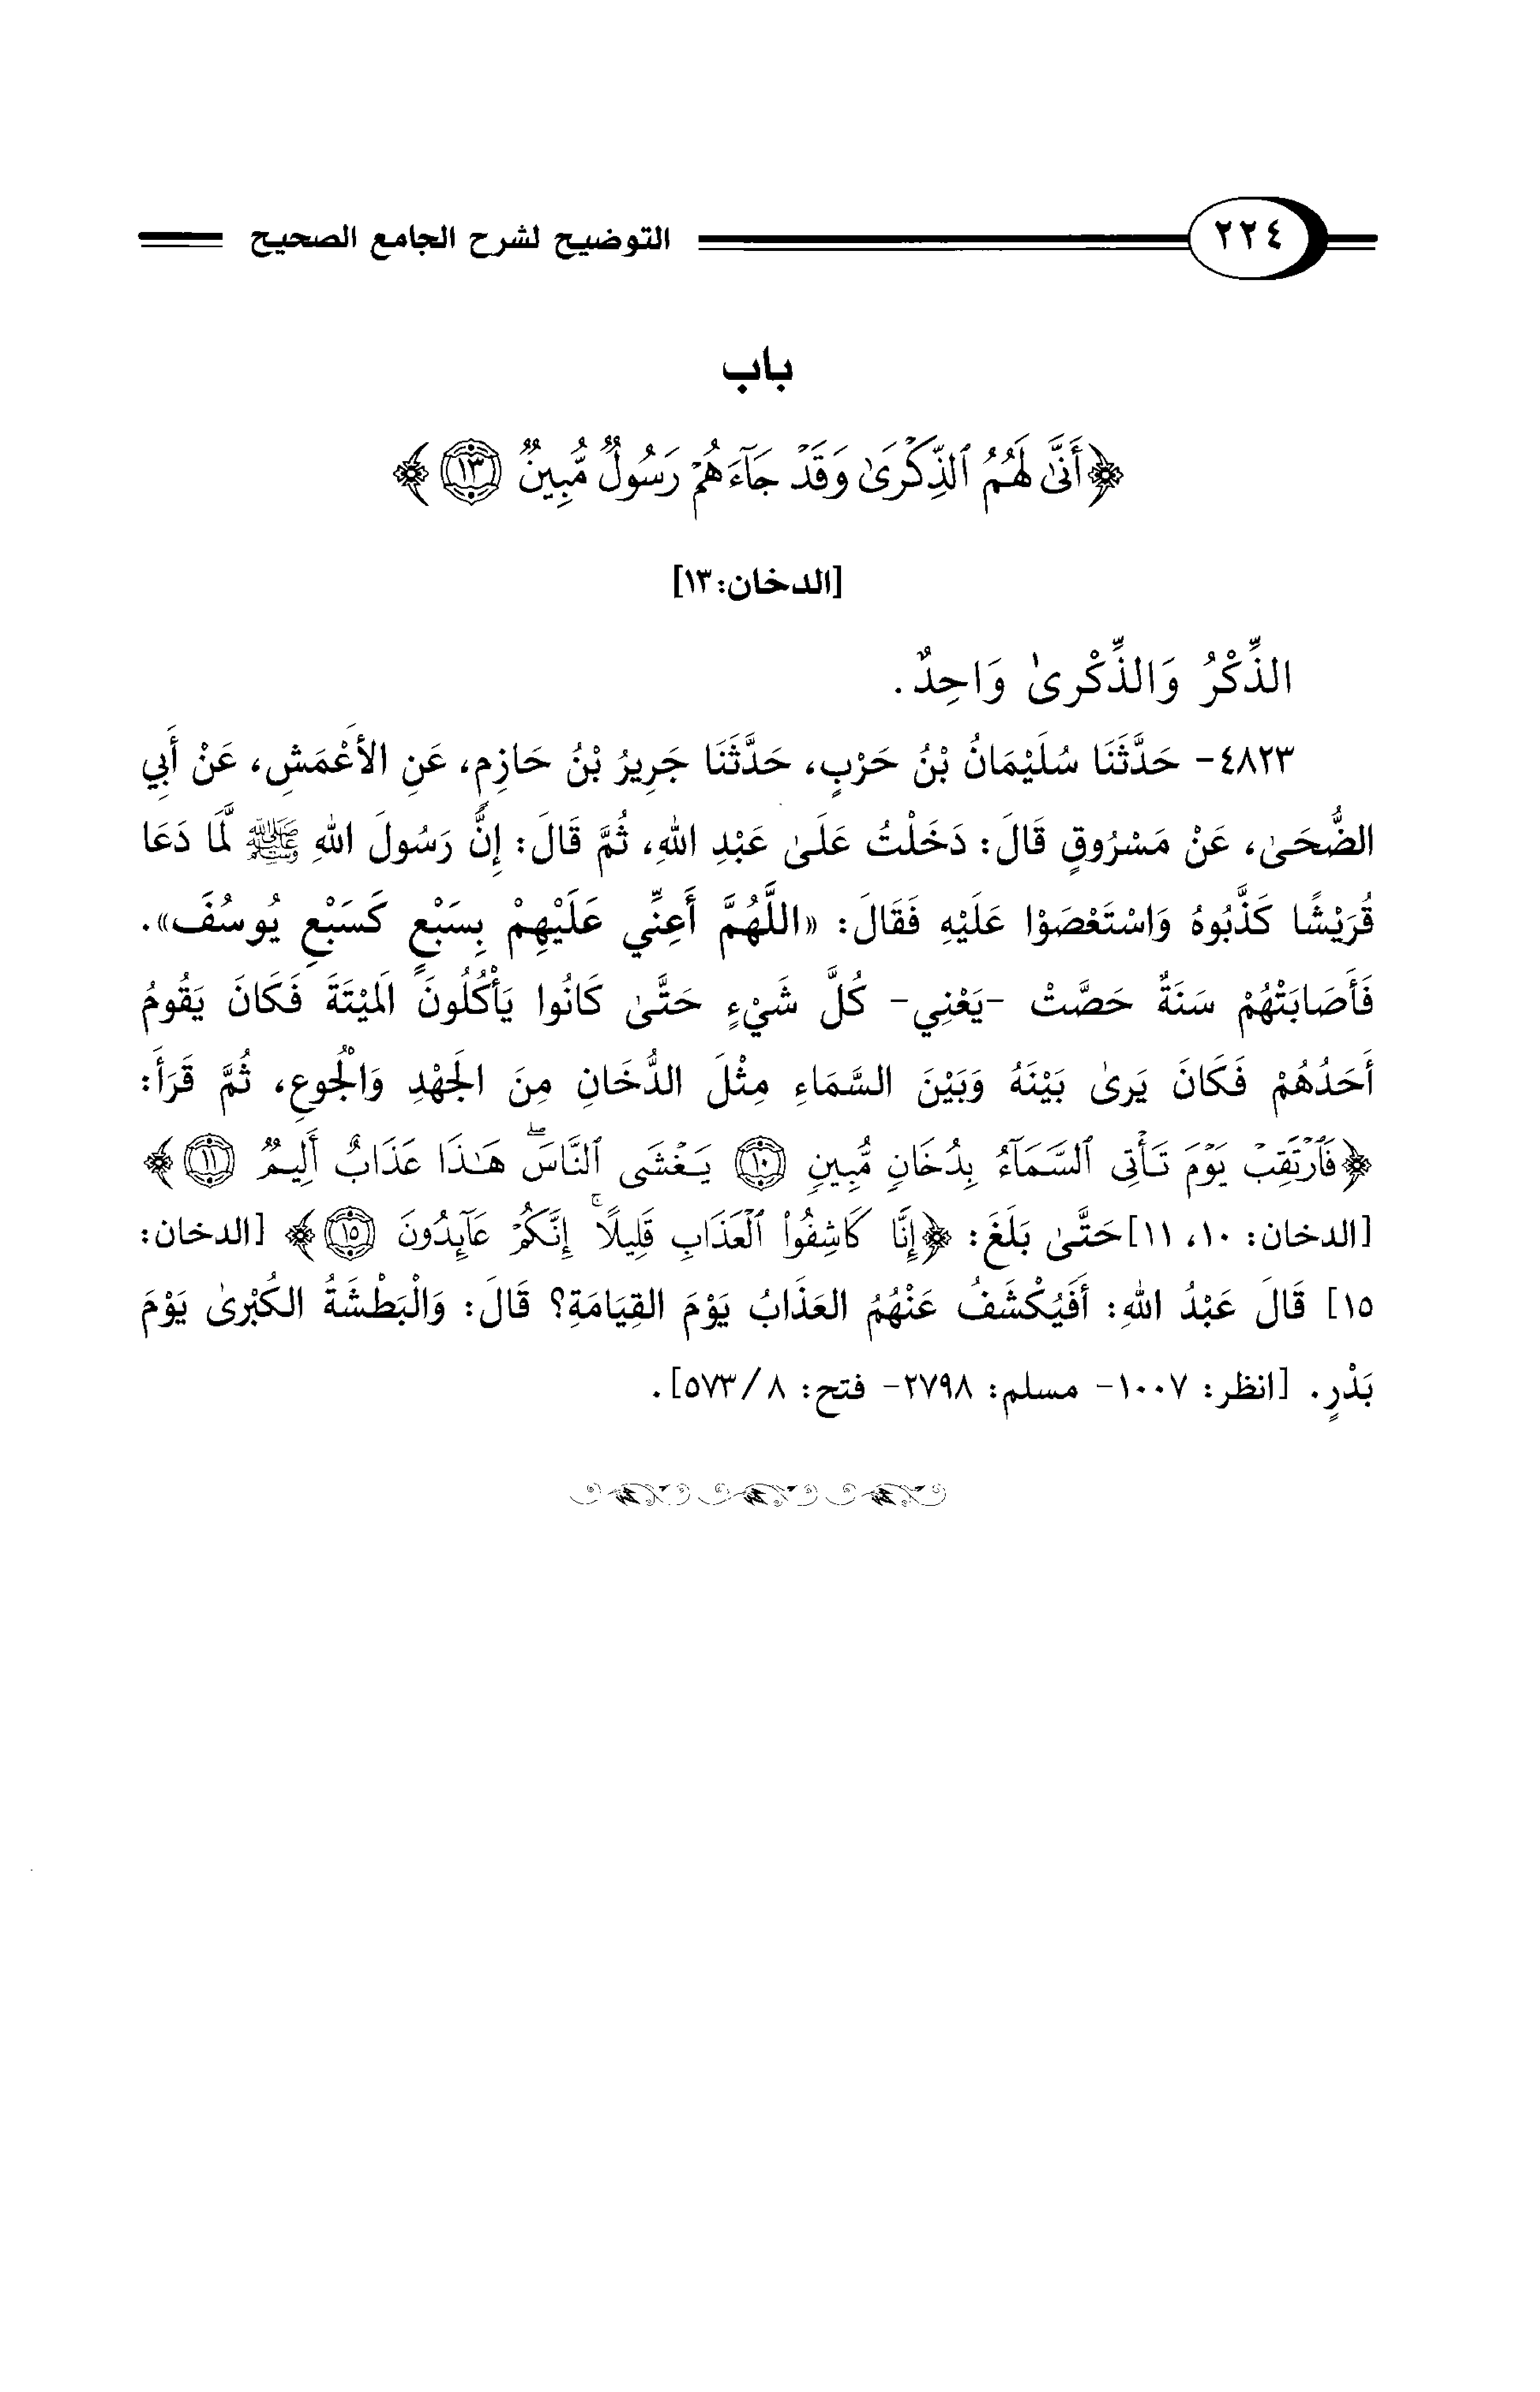 ٢٢٤ التوضيح لشرح الجامع الصحيح
باب
﴿أَنَّىٰ لَهُمُ ٱلذِّكْرَىٰ وَقَدْ جَآءَهُمْ رَسُولٌ مُّبِينٌ ١٣﴾
[الدخان:١٣]
الذِّكْرُ وَالذِّكْرىٰ وَاحِدٌ.
٤٨٢٣- حَدَّثَنَا سُلَيْمَانُ بْنُ حَرْبٍ، حَدَّثَنَا جَرِيرُ بْنُ حَازِمٍ، عَنِ الأَعْمَشِ، عَنْ أَبِي
الضُّحَىٰ، عَنْ مَسْرُوقٍ قَالَ: دَخَلْتُ عَلَىٰ عَبْدِ اللهِ، ثُمَّ قَالَ: إِنَّ رَسُولَ اللهِ ﷺ لَمَّا دَعَا
قُرَيْشًا كَذَّبُوهُ وَاسْتَعْصَوْا عَلَيْهِ فَقَالَ: «اللَّهُمَّ أَعِنِّي عَلَيْهِمْ بِسَبْعٍ كَسَبْعِ يُوسُفَ».
فَأَصَابَتْهُمْ سَنَةٌ حَصَّتْ -يَعْنِي- كُلَّ شَيْءٍ حَتَّىٰ كَانُوا يَأْكُلُونَ الَمَيْتَةَ فَكَانَ يَقُومُ
أَحَدُهُمْ فَكَانَ يَرىٰ بَيْنَهُ وَبَيْنَ السَّمَاءِ مِثْلَ الدُّخَانِ مِنَ الَجهْدِ وَالْجُوعِ، ثُمَّ قَرَأَ:
﴿فَٱرْتَقِبْ يَوْمَ تَأْتِى ٱلسَّمَآءُ بِدُخَانٍ مُّبِينٍ ١٠ يَغْشَى ٱلنَّاسَۖ هَـٰذَا عَذَابٌ أَلِيمٌ ١١﴾
[الدخان: ١٠، ١١] حَتَّىٰ بَلَغَ: ﴿إِنَّا كَاشِفُواْ ٱلْعَذَابِ قَلِيلًاۚ إِنَّكُمْ عَآئِدُونَ ١٥﴾ [الدخان:
١٥] قَالَ عَبْدُ اللهِ: أَفَيُكْشَفُ عَنْهُمُ العَذَابُ يَوْمَ القِيَامَةِ؟ قَالَ: وَالْبَطْشَةُ الكُبْرىٰ يَوْمَ
بَدْرٍ. [انظر: ١٠٠٧- مسلم: ٢٧٩٨- فتح: ٨/ ٥٧٣].